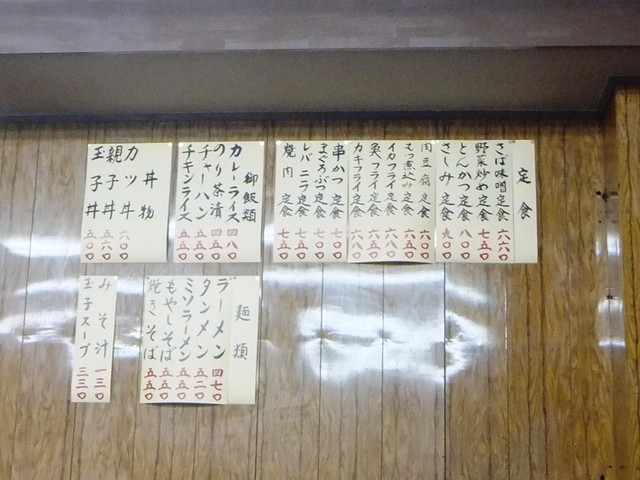 定食
さば味噌定食 六六〇
野菜炒め定食 七五〇
とんかつ定食 八〇〇
さしみ定食 九〇〇
肉豆腐定食 六〇〇
もつ煮込み定食 六五〇
イカフライ定食 六五〇
魚フライ定食 六五〇
カキフライ定食 六八〇
串かつ定食 七〇〇
まぐろぶつ定食 七〇〇
レバニラ定食 七五〇
焼肉定食 七五〇
御飯類
カレーライス 四八〇
のり茶漬 四五〇
チャーハン 五五〇
チキンライス 五五〇
丼物
カツ丼 六〇〇
親子丼 五六〇
玉子丼 五〇〇
麺類
ラーメン 四七〇
タンメン 五二〇
ミソラーメン 五五〇
もやしそば 五五〇
焼きそば 五五〇
みそ汁 一三〇
玉子スープ 三三〇